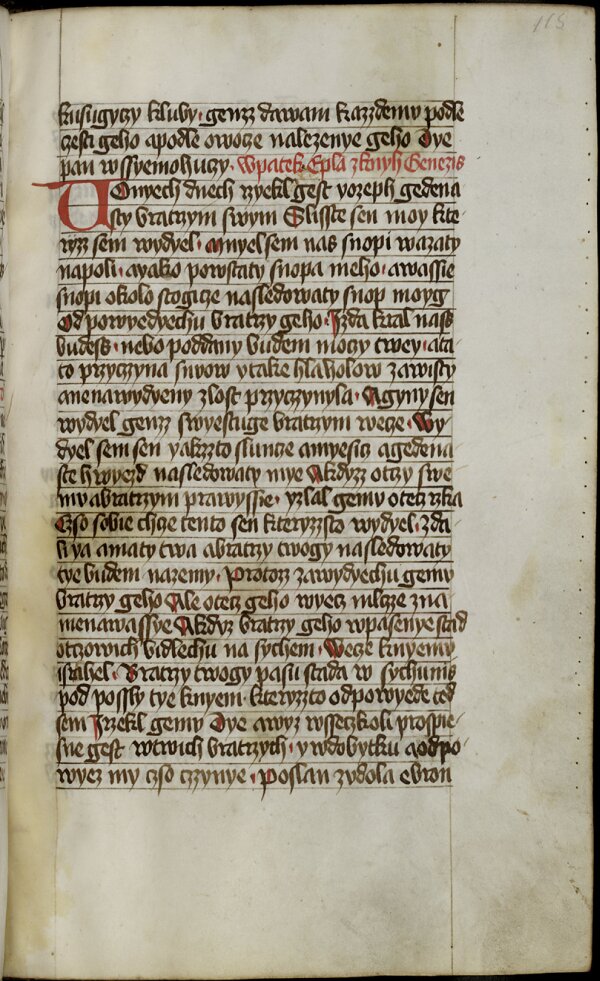 115
kusugyczy kluby · genzz dawam kazzdemu podle
czesti geho apodle owocze nalezenye geho Dye
pan wssyemohuczy · Wpatek Epla zknyh Genezis
VOnyech dnech rzyekl gest yozeph gedena
sty bratrzym swym Slisste sen moy kte
ryzz sem wydyel · mnyel sem nas snopi wazaty
napoli · ayako powstaty snopa meho · awassie
snopi okolo stogicze nasledowaty snop moyg
Odpowyedyechu bratrzy geho · Izda kral nass
budess · nebo poddany budem moczy twey · ata
to przyczyna snuow ytake hlaholow zawisty
anenawydyeny zlost przyczynyla · Agyny sen
wydyel genzz swyestuge bratrzym wecze · Wy
dyel sem sen yakzzto sluncze amyesicz agedena
ste hwyezd nasledowaty mye Akdyzz otczy swe
mu abratrzym prawyssie · yzlal gemu otecz rzka
Czso sobie chcze tento sen kteryzzsto wydyel · zda
li ya amaty twa abratrzy twogy nasledowaty
tye budem nazemy · Protoz zawydyechu gemu
bratrzy geho Ale otecz geho wyecz mlcze zna
menawassye Akdyz bratrzy geho wpasenye stad
otczowich bidlechu na sychem · Wecze knyemu
israhel · Bratrzy twogy pasu stada w sychimis
pod possly tye knym · kteryzzto odpowyede ted
sem Irzekl gemu Dye awyz wsseczkoli prospie
sne gest wtwich bratrzych · ywdobytku aodpo
wyez my czso czzynye · Poslan zydola ebron